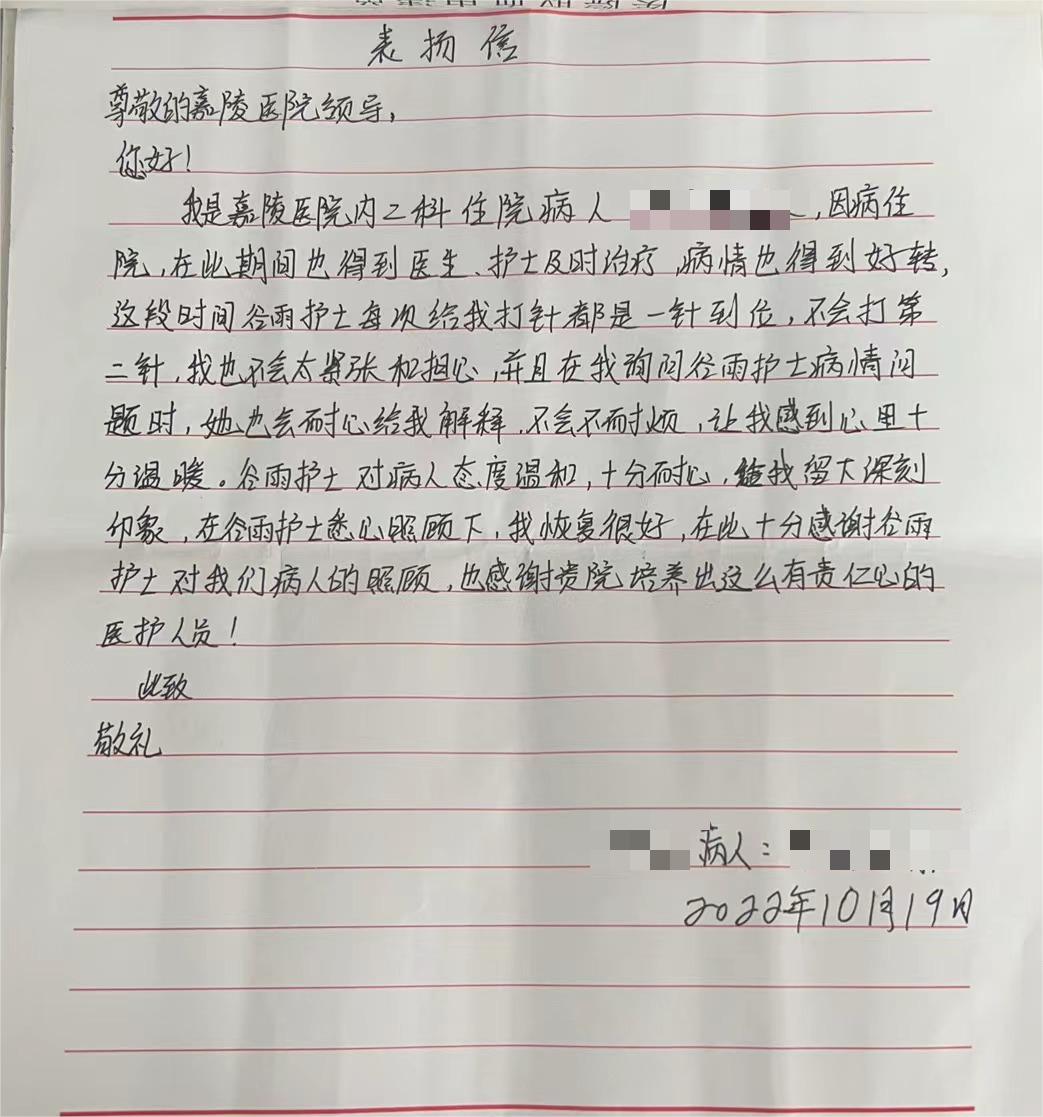 表扬信
尊敬的嘉陵医院领导,
您好!
我是嘉陵医院内二科住院病人,因病住
院,在此期间也得到医生、护士及时治疗,病情也得到好转,
这段时间谷雨护士每次给我打针都是一针到位,不会打第
二针,我也不会太紧张和担心,并且在我询问谷雨护士病情问
题时,她也会耐心给我解释,不会不耐烦,让我感到心里十
分温暖。谷雨护士对病人态度温和,十分耐心,给我留下深刻
印象,在谷雨护士悉心照顾下,我恢复很好,在此十分感谢谷雨
护士对我们病人的照顾,也感谢贵院培养出这么有责任心的
医护人员!
此致
敬礼
病人:
2022年10月19日